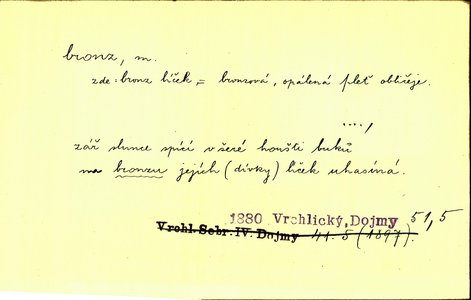 bronz, m.
zde: bronz líček = bronzová, opálená pleť obličeje.
...,
zář slunce spící v šeré houšti buků
na bronzu jejích (dívky) líček uhasíná.
1880 Vrchlický, Dojmy 51,5
Vrchl. Sebr. IV. Dojmy 41. 5 (1897).